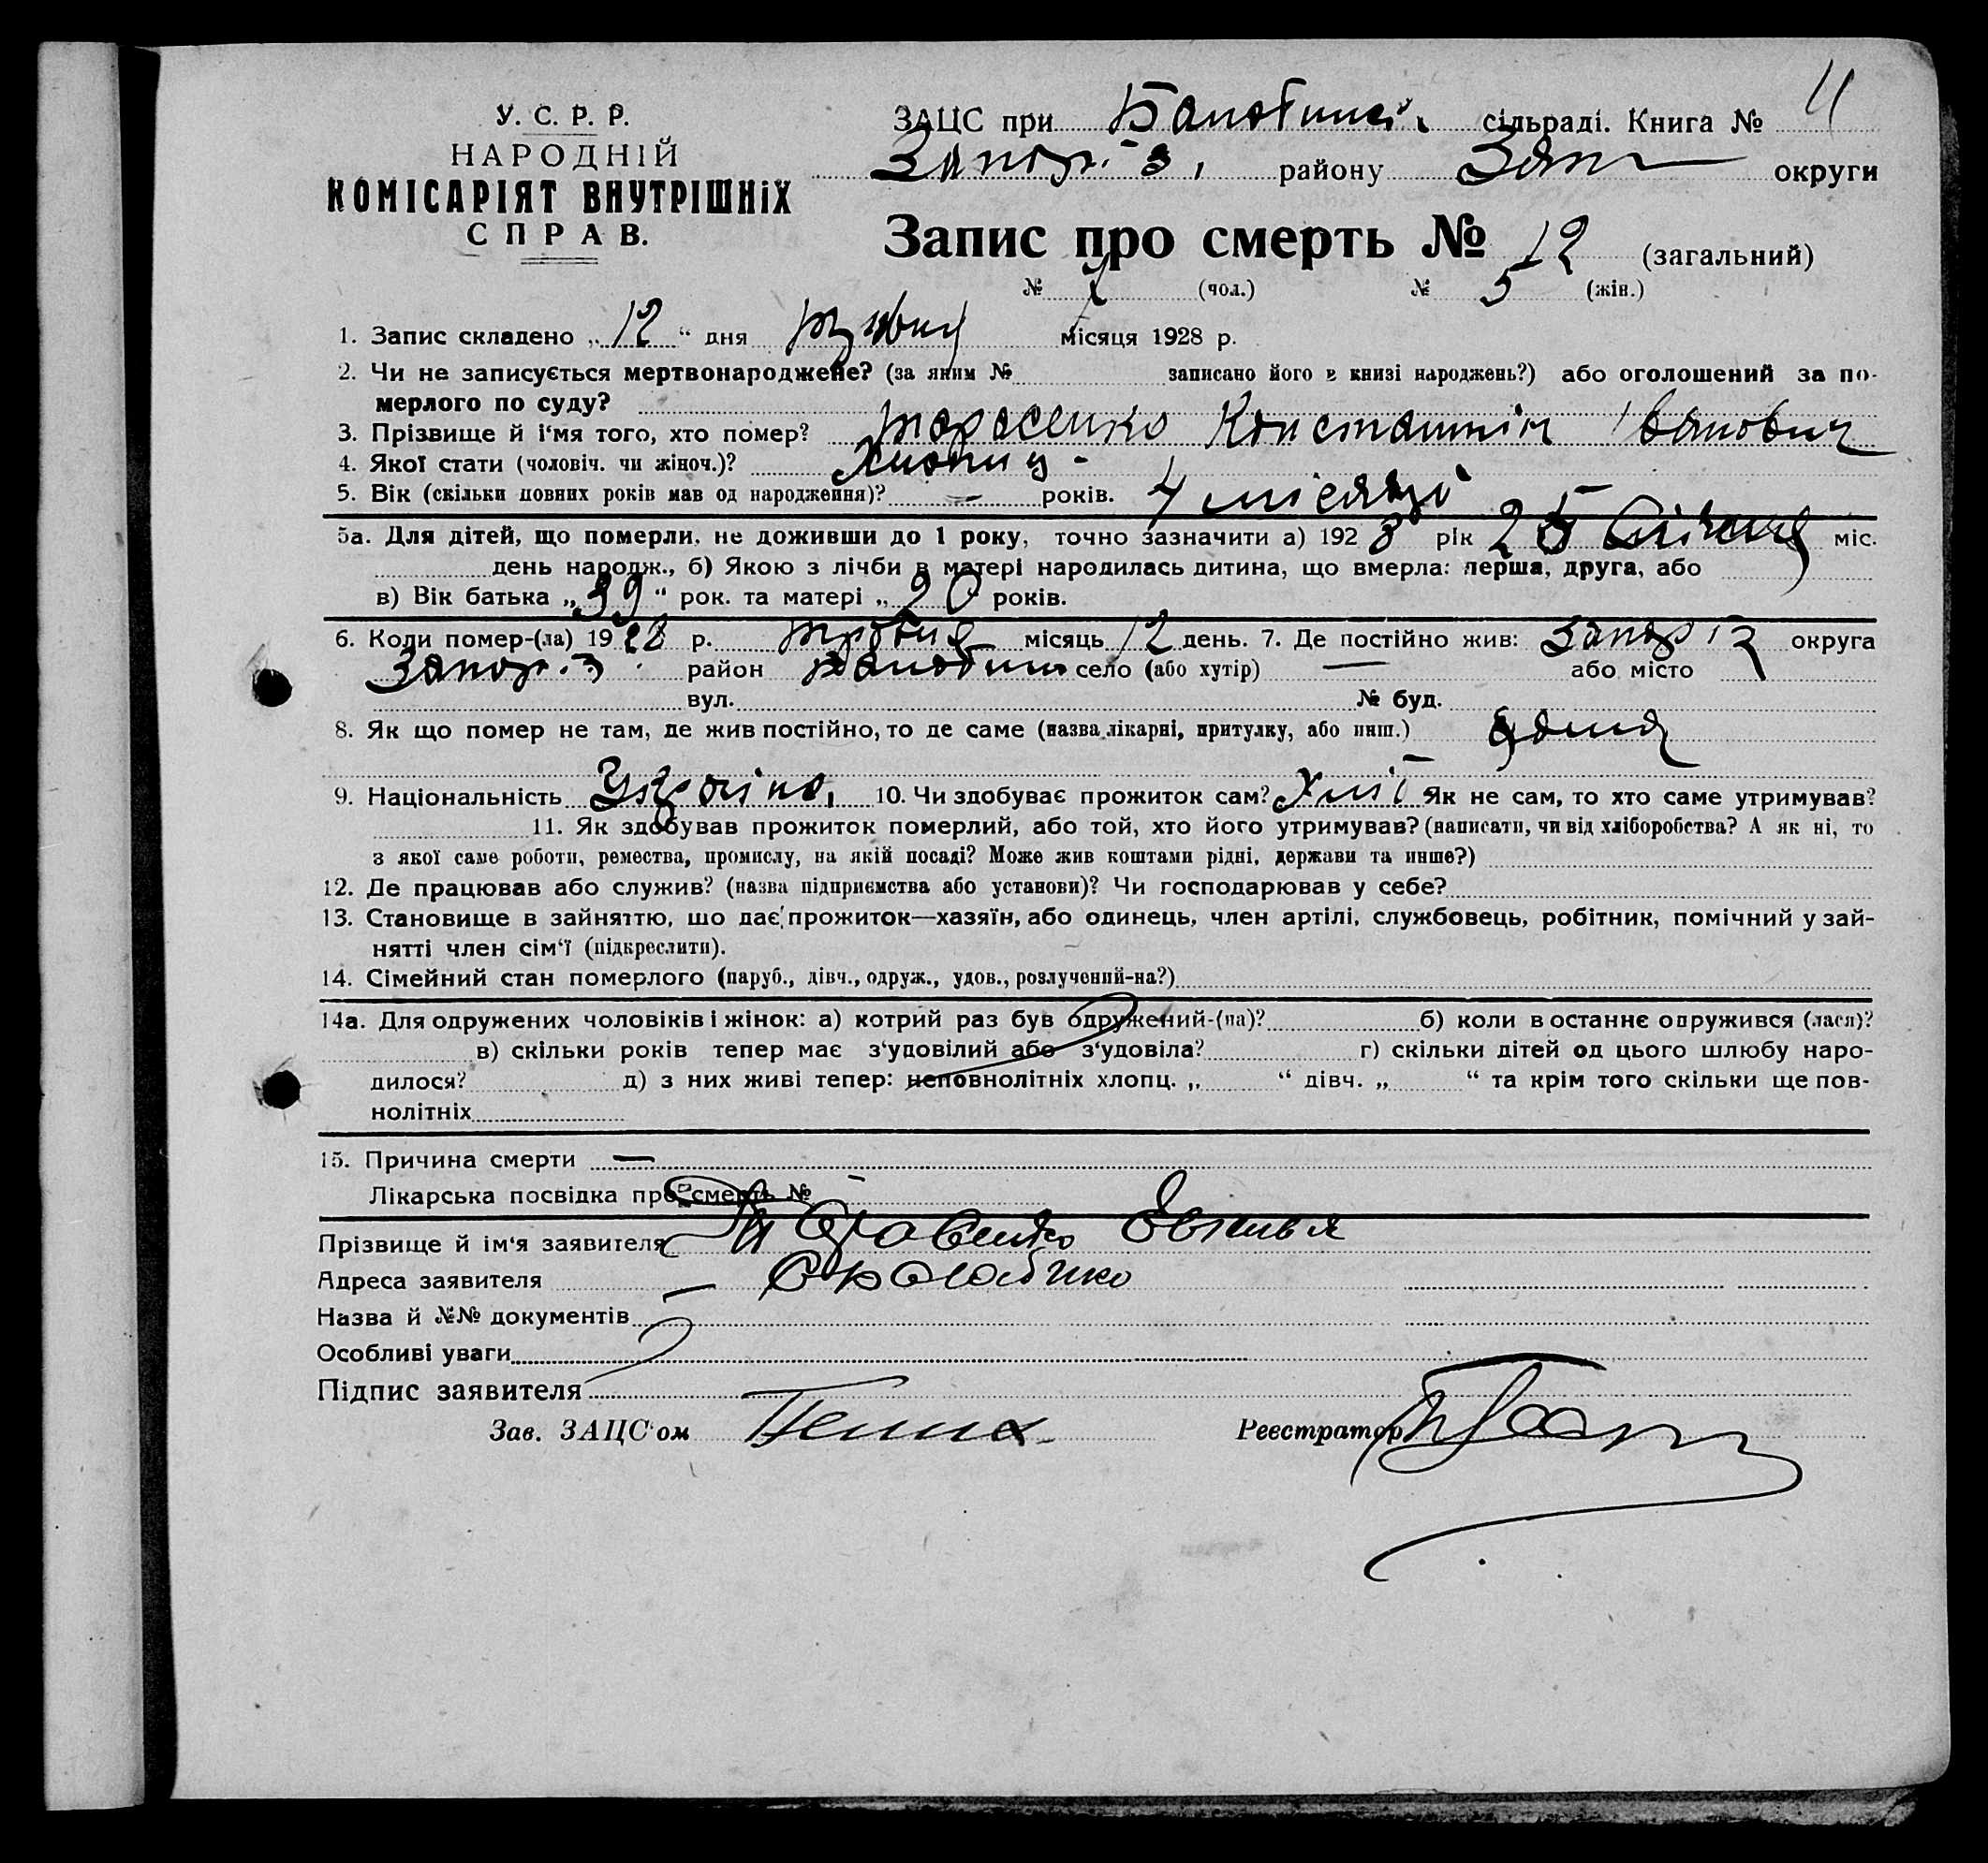 У. С. Р. Р.
НАРОДНІЙ
КОМІСАРІЯТ ВНУТРІШНіХ
СПРАВ.
ЗАЦС при сільраді. Книга №
Запор. району Зап округи
Запис про смерть № 12 (загальний)
№ (чол.) № 5 (жін.)
1. Запис складено „ 12 “ дня травня місяця 1928 р.
2. Чи не записується мертвонароджене? (за яким № записано його в книзі народжень?) або оголошений за по-
мерлого по суду?
3. Прізвище й і‘мя того, хто помер? Тарасенко Константін Іванович
4. Якої стати (чоловіч. чи жіноч.)? Хлопиц
5. Вік (скільки повних років мав од народження)? — років. 4 місяці
5а. Для дітей, що померли, не доживши до 1 року, точно зазначити а) 1928 рік 25 Січня міс.
день народж., б) Якою з лічби в матері народилась дитина, що вмерла: перша, друга, або
в) Вік батька „ 39 “ рок. та матері „ 20 років.
6. Коли помер-(ла) 1928 р. травня місяць 12 день. 7. Де постійно жив: Запор округа
Запор. район село (або хутір) — або місто
вул. № буд.
8. Як що помер не там, де жив постійно, то де саме (назва лікарні, притулку, або инш.) дома
9. Національність Україн. 10. Чи здобуває прожиток сам? Як не сам, то хто саме утримував?
11. Як здобував прожиток померлий, або той, хто його утримував? (написати, чи від хліборобства? А як ні, то
з якої саме роботи, ремества, промислу, на якій посаді? Може жив коштами рідні, держави та инше?)
12. Де працював або служив? (назва підприємства або установи)? Чи господарював у себе?
13. Становище в зайняттю, що дає прожиток—хазяїн, або одинець, член артілі, службовець, робітник, помічний у зай-
нятті член сім‘ї (підкреслити).
14. Сімейний стан померлого (паруб., дівч., одруж., удов., розлучений-на?)
14а. Для одружених чоловіків і жінок: а) котрий раз був одружений-(на)? б) коли в останнє одружився (лася)?
в) скільки років тепер має з‘удовілий або з‘удовіла? г) скільки дітей од цього шлюбу наро-
дилося? д) з них живі тепер: неповнолітніх хлопц. „ “ дівч. „ “ та крім того скільки ще пов-
нолітніх
15. Причина смерти —
Лікарська посвідка про смерть №
Прізвище й ім‘я заявителя
Адреса заявителя
Назва й №№ документів
Особливі уваги
Підпис заявителя
Зав. ЗАЦС‘ом Реєстратор